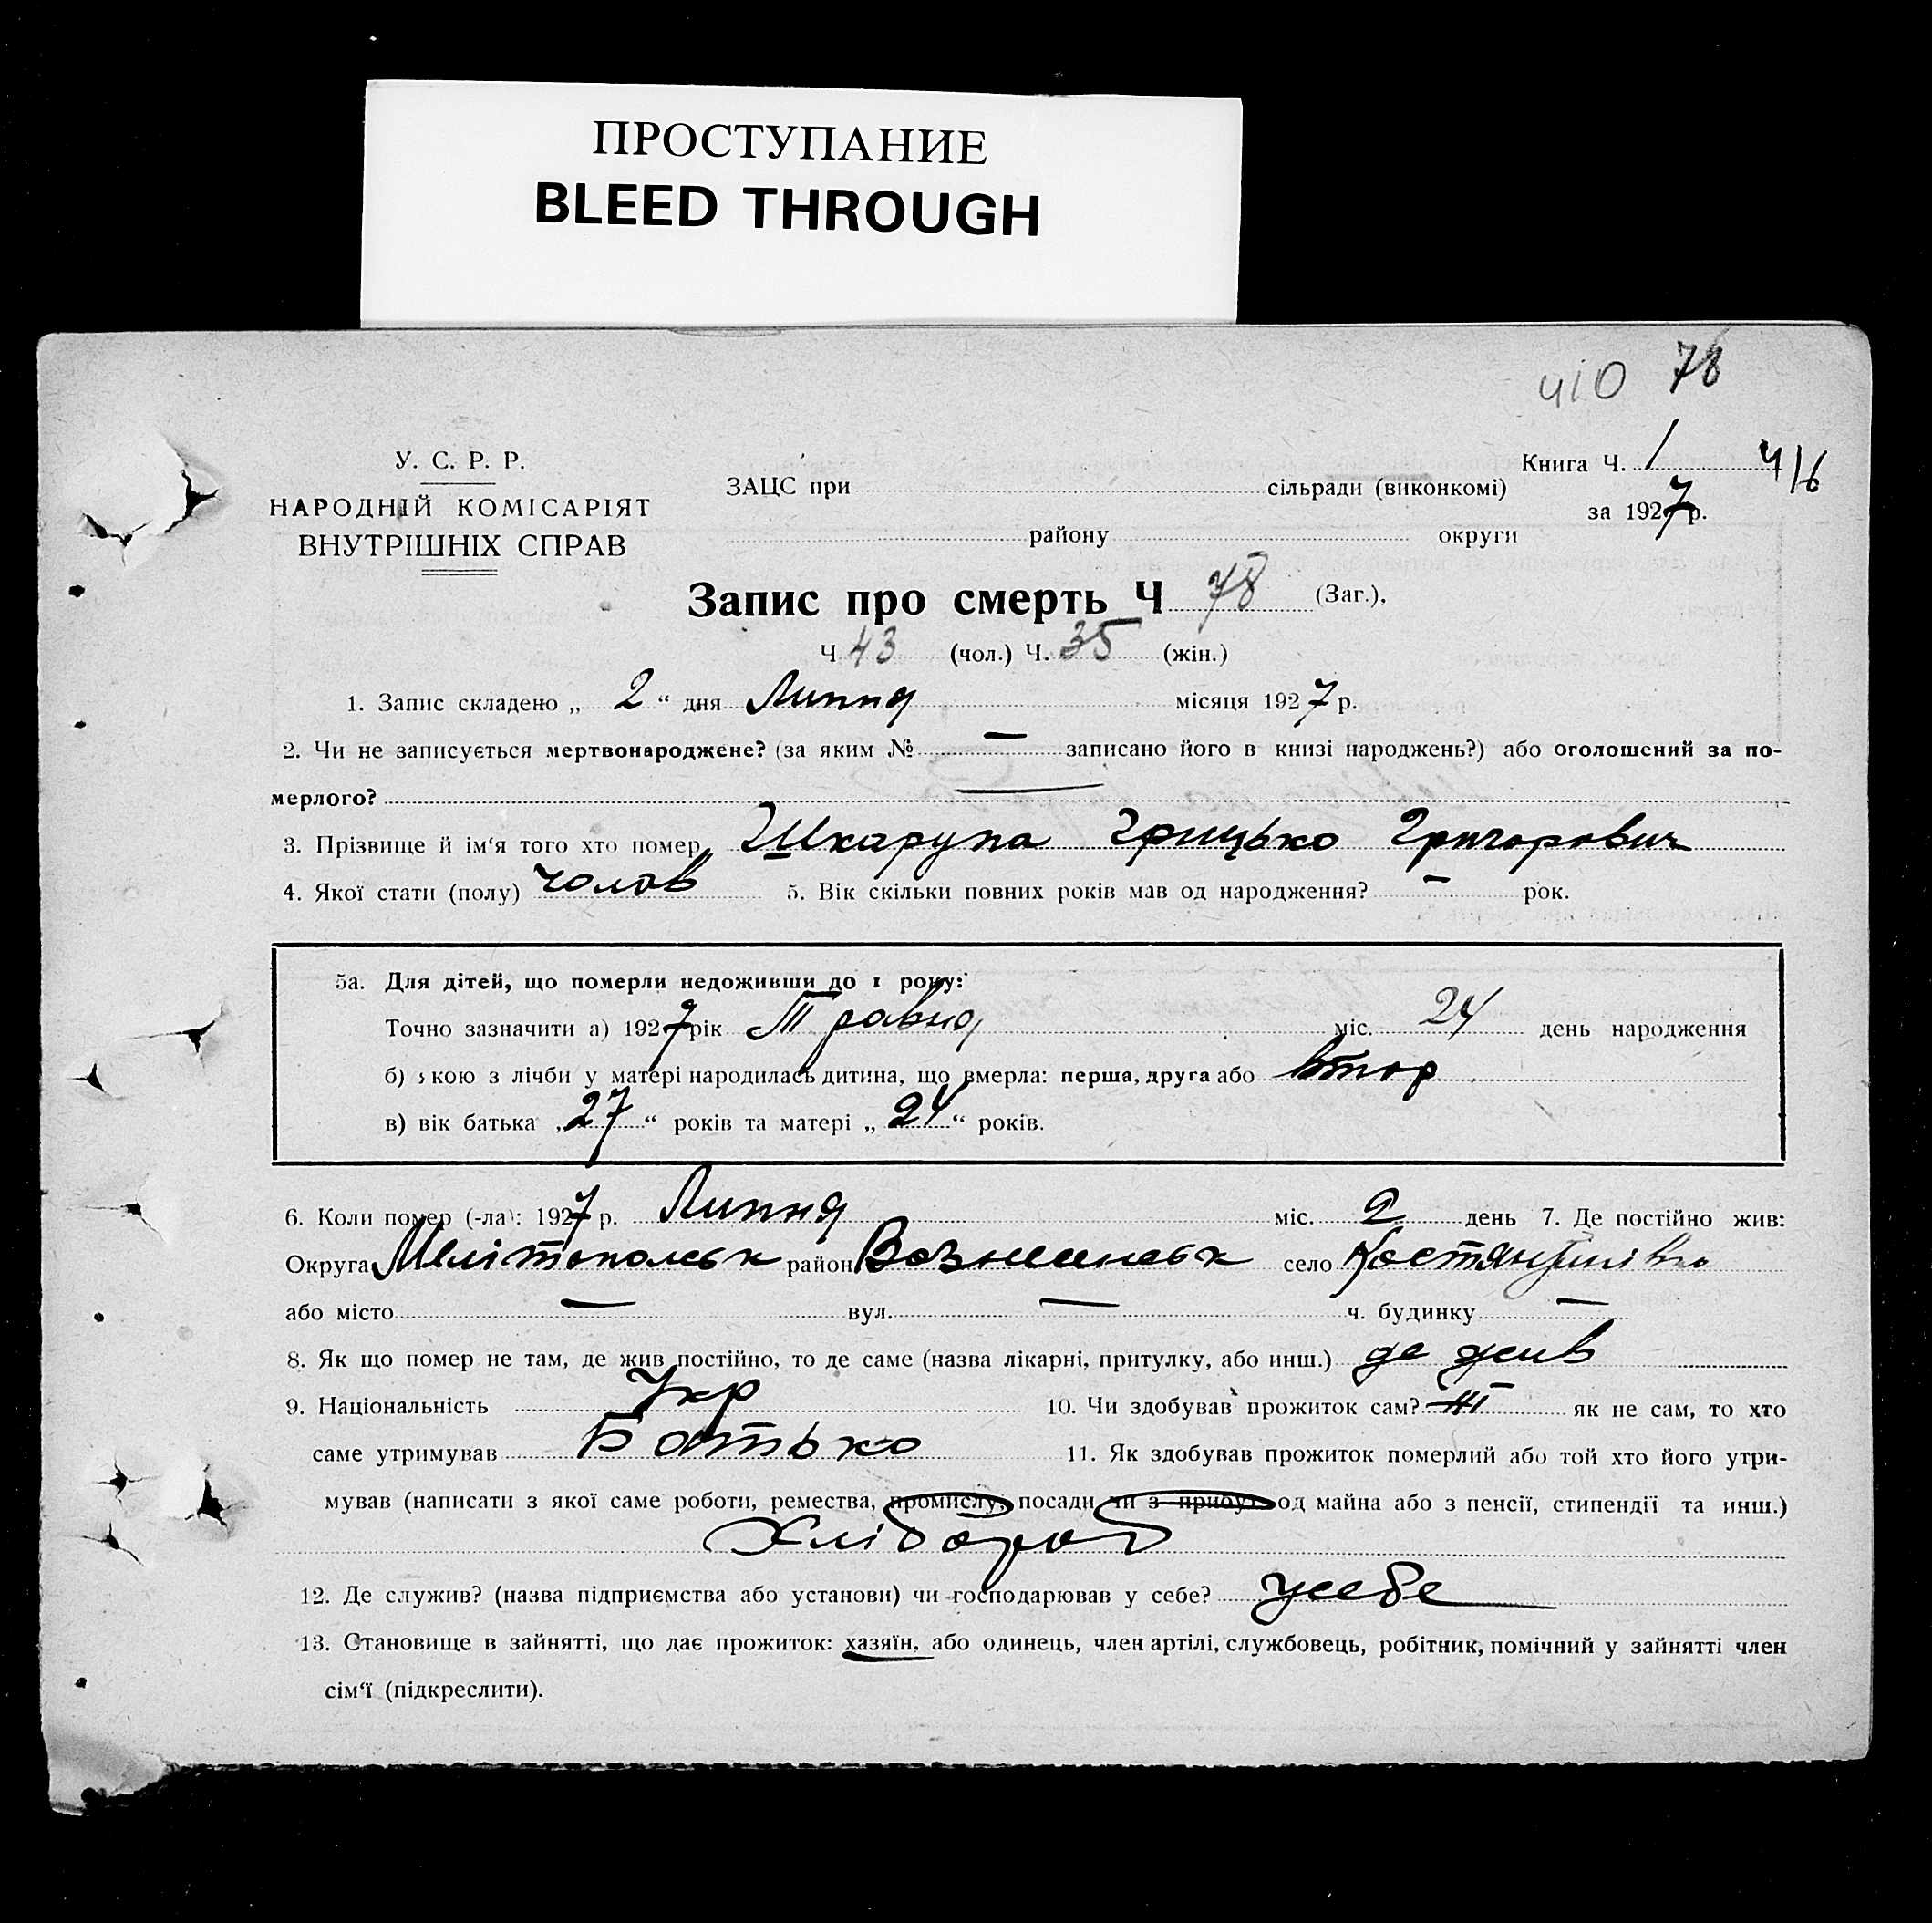 ПРОСТУПАНИЕ
BLEED THROUGH
410 78
У. С. Р. Р.
НАРОДНІЙ КОМІСАРІЯТ
ВНУТРІШНІХ СПРАВ
Книга Ч. 1 416
ЗАЦС при сільради (виконкомі)
за 1927 р.
району округи
Запис про смерть Ч 78 (Заг.),
Ч 43 (чол.) Ч. 35 (жін.)
1. Запис складено „ 2 “ дня Липня місяця 1927 р.
2. Чи не записується мертвонароджене? (за яким № — записано його в книзі народжень?) або оголошений за по-
мерлого? —
3. Прізвище й ім‘я того хто помер Шкарупа Грицько Григорович
4. Якої стати (полу) чолов 5. Вік скільки повних років мав од народження? — рок.
5а. Для дітей, що померли недоживши до 1 року:
Точно зазначити а) 1927 рік Травня міс. 24 день народження
б) якою з лічби у матері народилась дитина, що вмерла: перша, друга або втор
в) вік батька „ 27 “ років та матері „ 24 “ років.
6. Коли помер (-ла): 1927 р. Липня міс. 2 день 7. Де постійно жив:
Округа Мелітопольск район Вознесенськ село Костянтинівка
або місто — вул. — ч. будинку —
8. Як що помер не там, де жив постійно, то де саме (назва лікарні, притулку, або инш.) де жив
9. Національність Укр 10. Чи здобував прожиток сам? ні як не сам, то хто
саме утримував Батько 11. Як здобував прожиток померлий або той хто його утри-
мував (написати з якої саме роботи, ремества, промислу, посади чи з прибут. од майна або з пенсії, стипендії та инш.)
Хлібороб
12. Де служив? (назва підприємства або установи) чи господарював у себе? усебе
13. Становище в зайнятті, що дає прожиток: хазяїн, або одинець, член артілі, службовець, робітник, помічний у зайнятті член
сім‘ї (підкреслити).